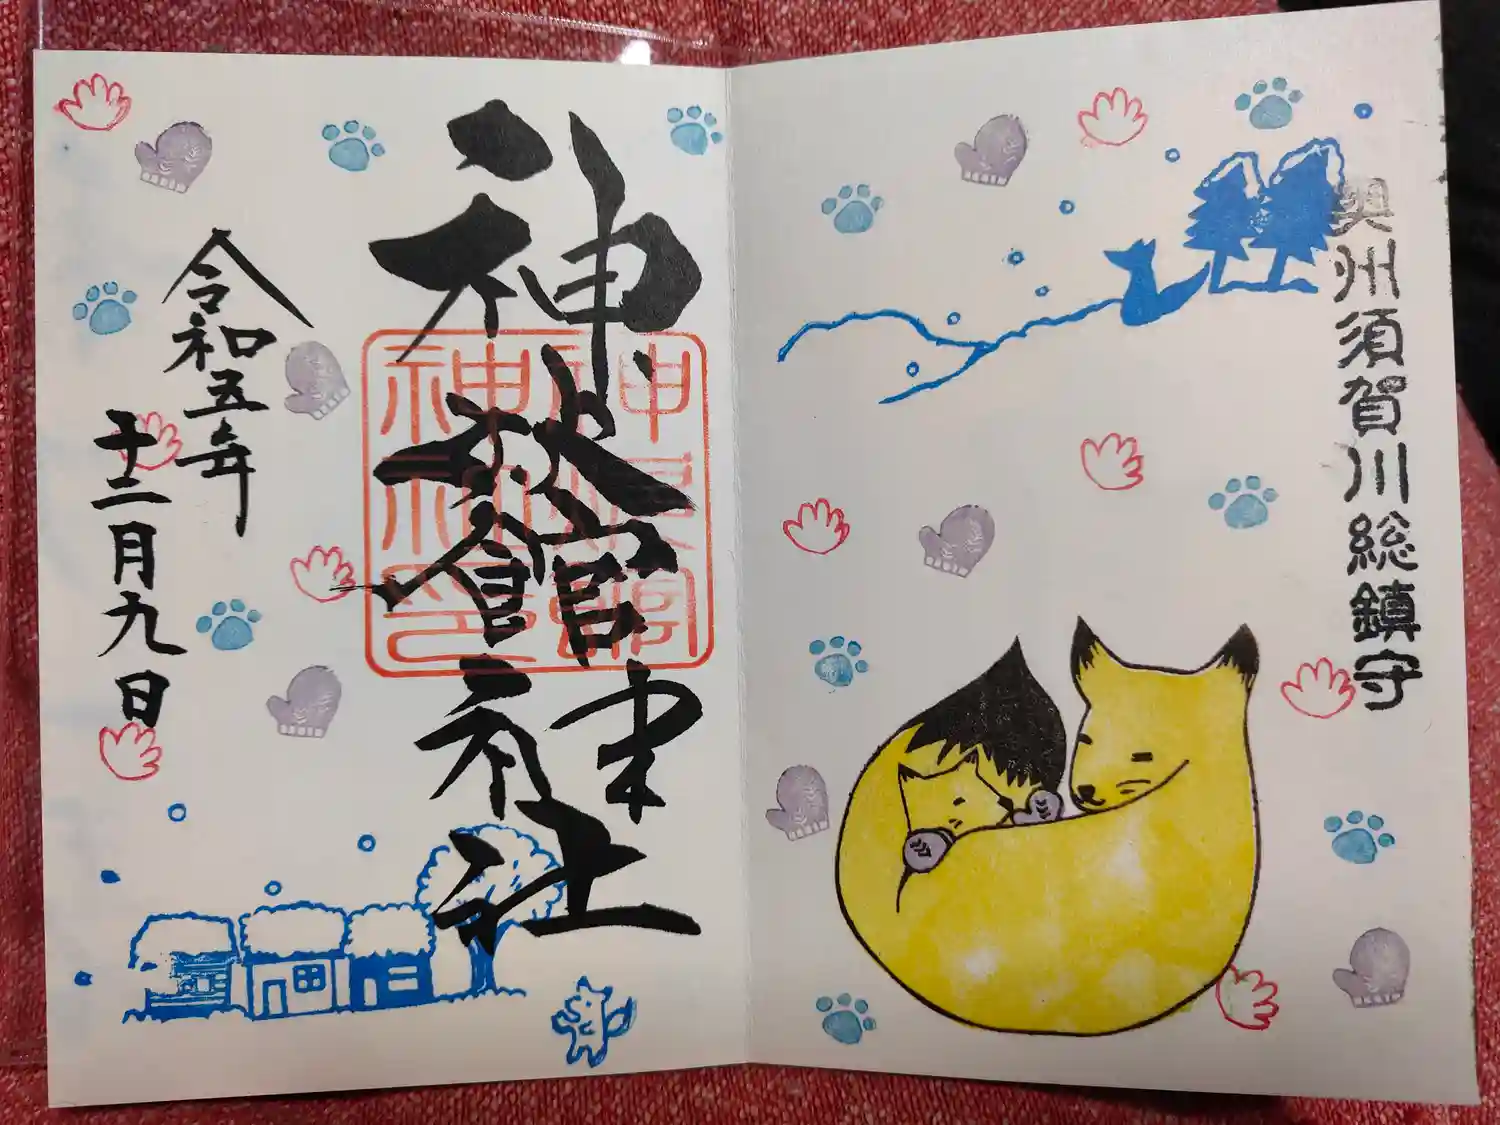 奥州須賀川総鎮守
神炊館神社
神炊館
神社印
令和五年
十二月九日